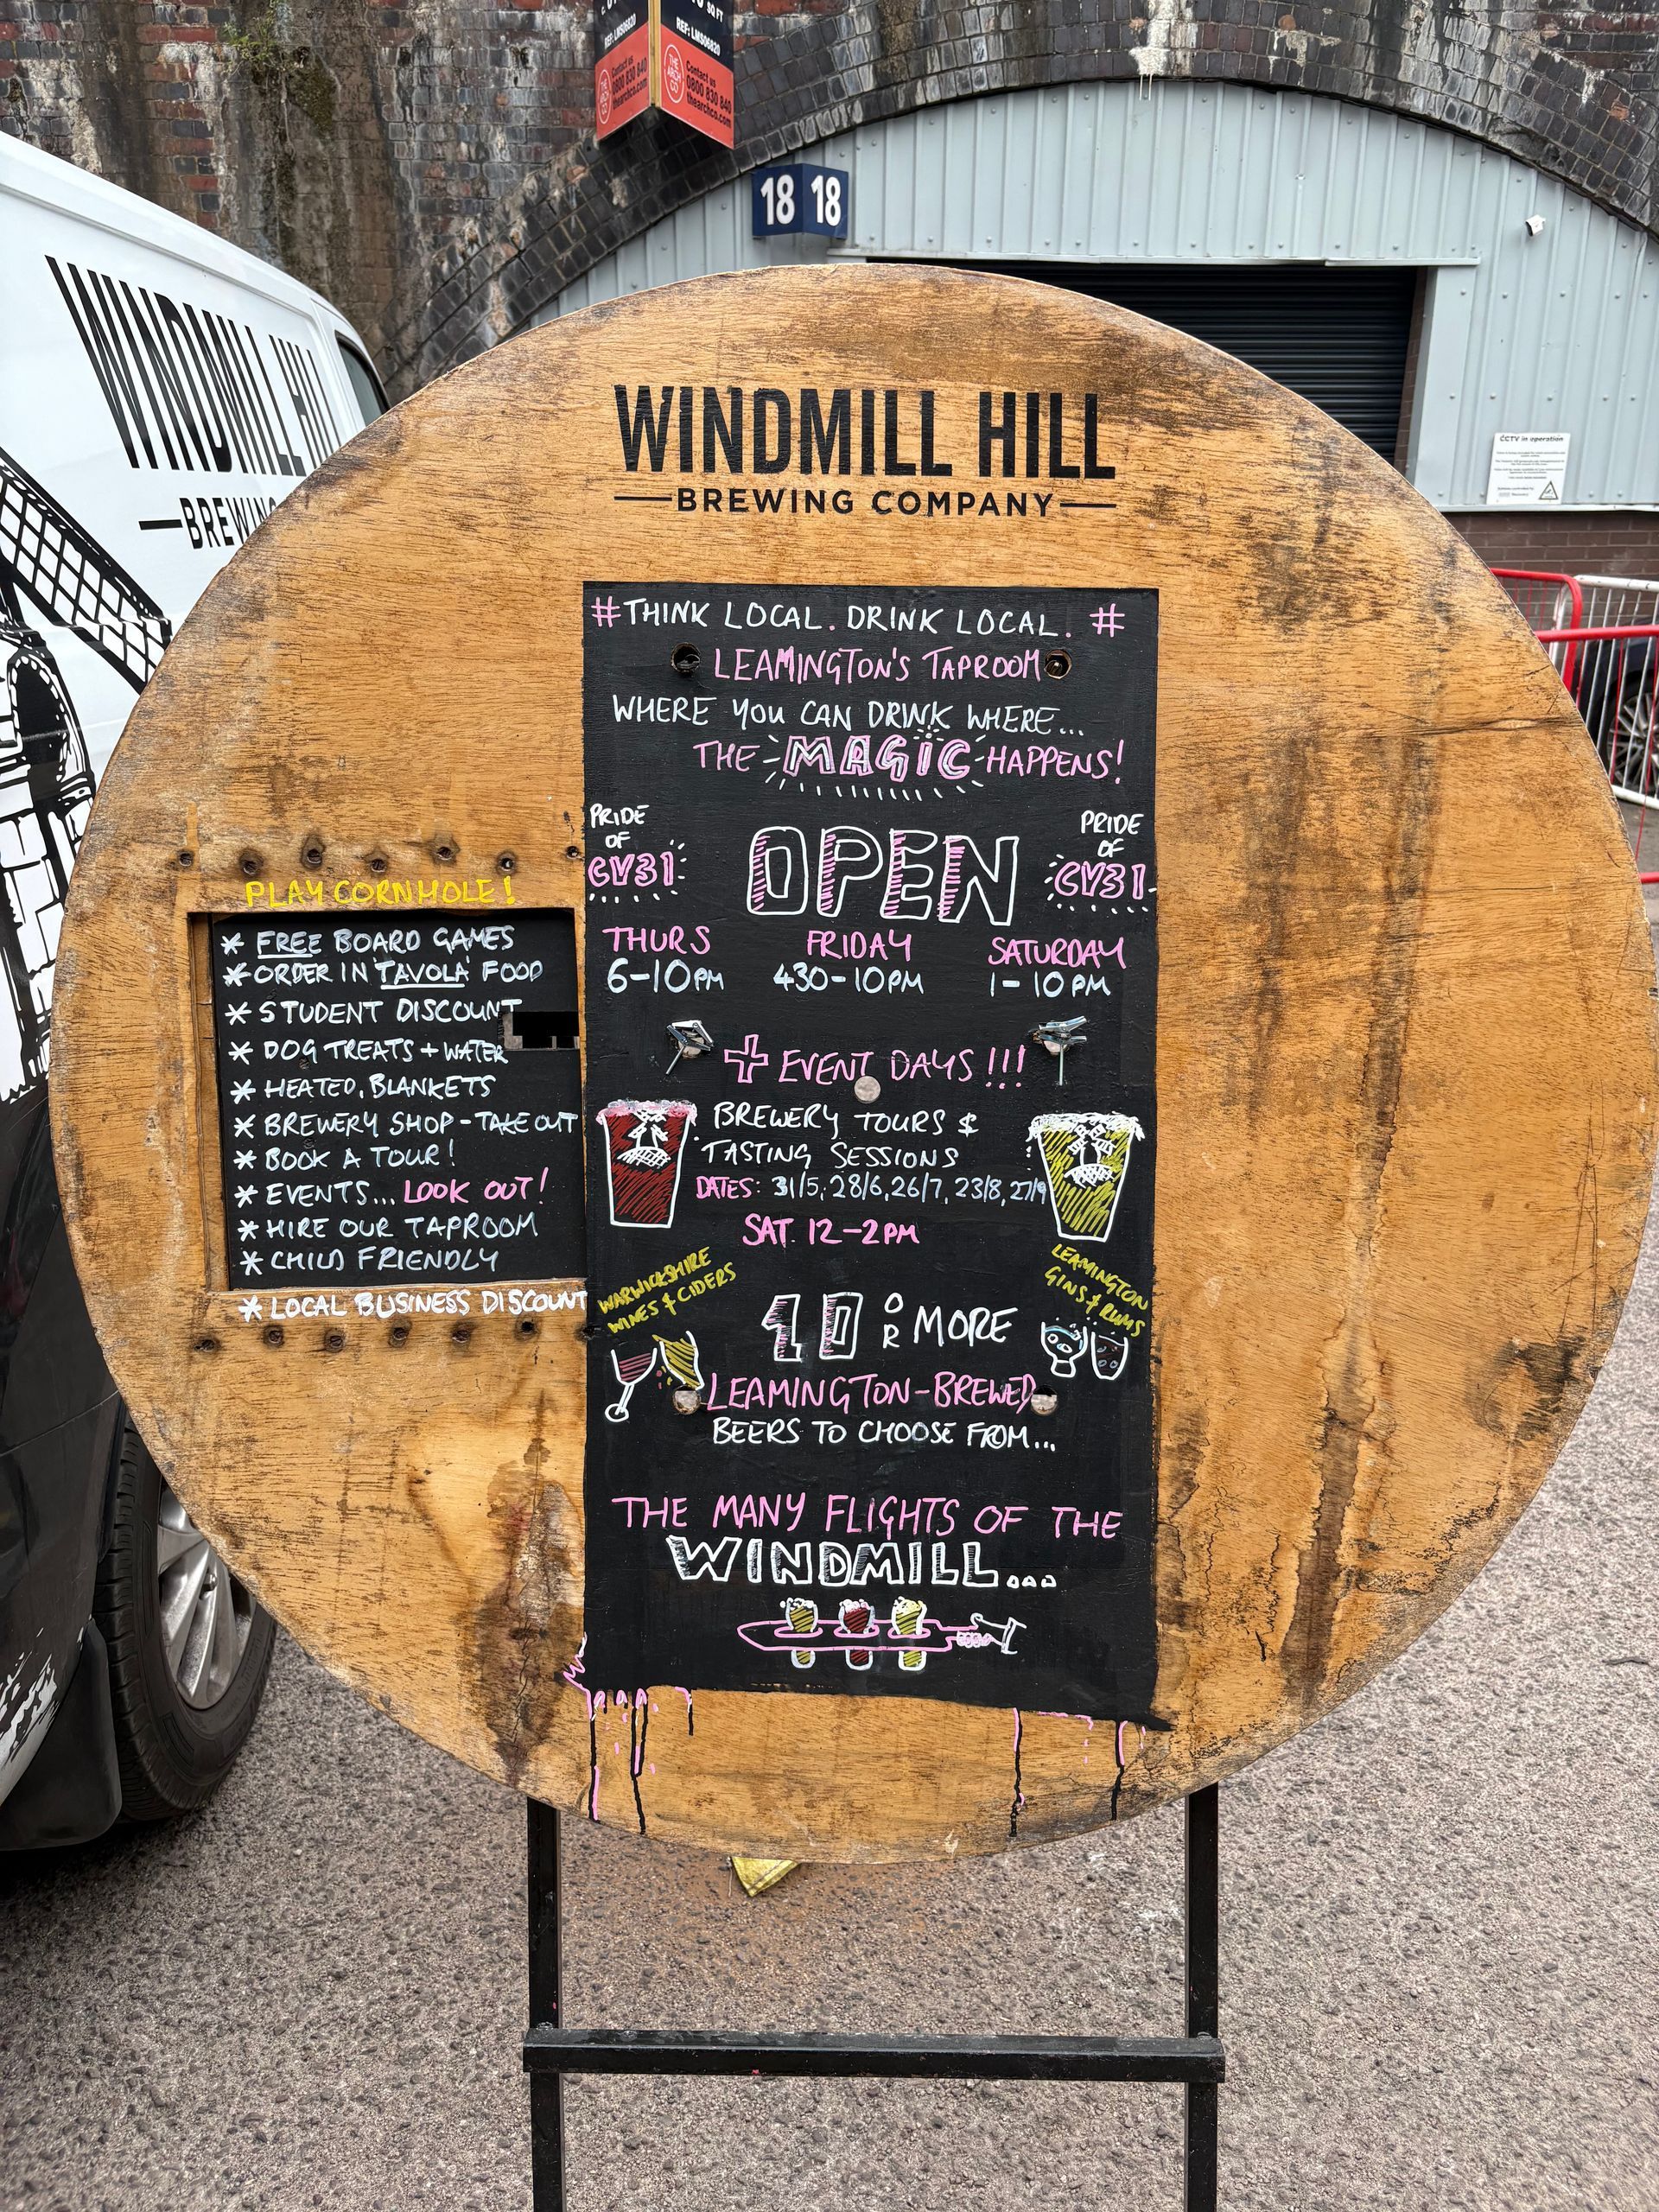 SQ FT
REF: LMS06820
REF: LMS06820
THE ARCH CO
Contact us
0800 830 840
thearchco.com
Contact us
0800 830 840
thearchco.com
18 18
CCTV in operation
WINDMILL HILL
BREWING
WINDMILL HILL
BREWING COMPANY
#THINK LOCAL. DRINK LOCAL. #
LEAMINGTON'S TAPROOM
WHERE YOU CAN DRINK WHERE...
THE MAGIC HAPPENS!
PRIDE
OF
CV31
OPEN
PRIDE
OF
CV31
THURS FRIDAY SATURDAY
6-10PM 430-10PM 1-10PM
+ EVENT DAYS!!!
BREWERY TOURS &
TASTING SESSIONS
DATES: 31/5, 28/6, 26/7, 23/8, 27/9
SAT. 12-2PM
WARWICKSHIRE
WINES & CIDERS
LEAMINGTON
GINS & RUMS
10 OR MORE
LEAMINGTON-BREWED
BEERS TO CHOOSE FROM...
THE MANY FLIGHTS OF THE
WINDMILL...
PLAY CORNHOLE!
* FREE BOARD GAMES
* ORDER IN 'TAVOLA' FOOD
* STUDENT DISCOUNT
* DOG TREATS + WATER
* HEATED, BLANKETS
* BREWERY SHOP - TAKE OUT
* BOOK A TOUR!
* EVENTS... LOOK OUT!
* HIRE OUR TAPROOM
* CHILD FRIENDLY
* LOCAL BUSINESS DISCOUNT